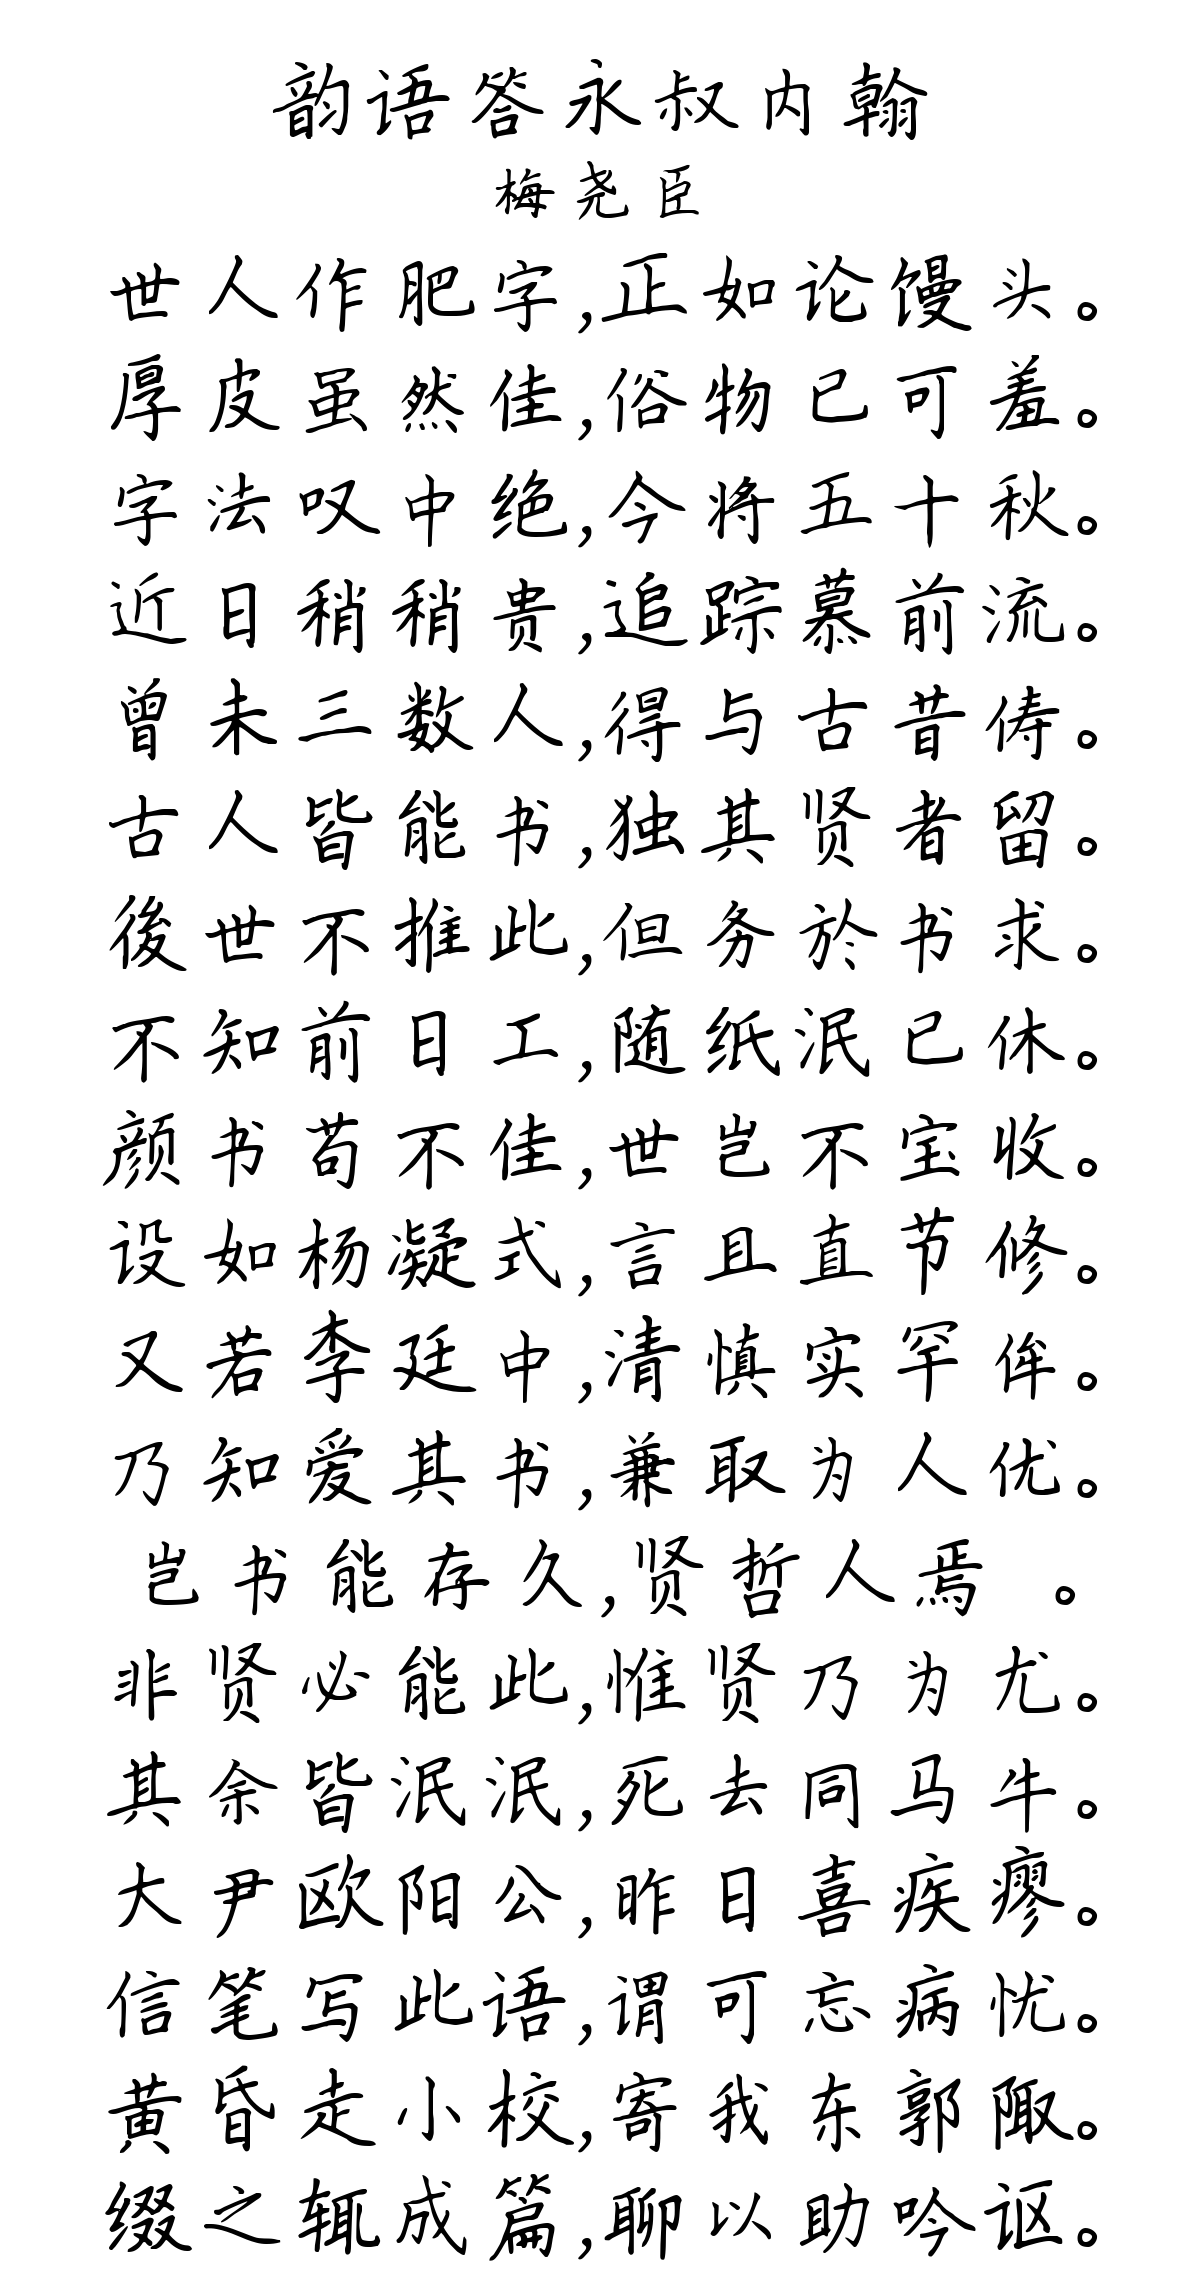 韵语答永叔内翰
梅尧臣
世人作肥字,正如论馒头。
厚皮虽然佳,俗物已可羞。
字法叹中绝,今将五十秋。
近日稍稍贵,追踪慕前流。
曾未三数人,得与古昔俦。
古人皆能书,独其贤者留。
後世不推此,但务於书求。
不知前日工,随纸泯已休。
颜书苟不佳,世岂不宝收。
设如杨凝式,言且直节修。
又若李廷中,清慎实罕侔。
乃知爱其书,兼取为人优。
岂书能存久,贤哲人焉 。
非贤必能此,惟贤乃为尤。
其余皆泯泯,死去同马牛。
大尹欧阳公,昨日喜疾瘳。
信笔写此语,谓可忘病忧。
黄昏走小校,寄我东郭陬。
缀之辄成篇,聊以助吟讴。